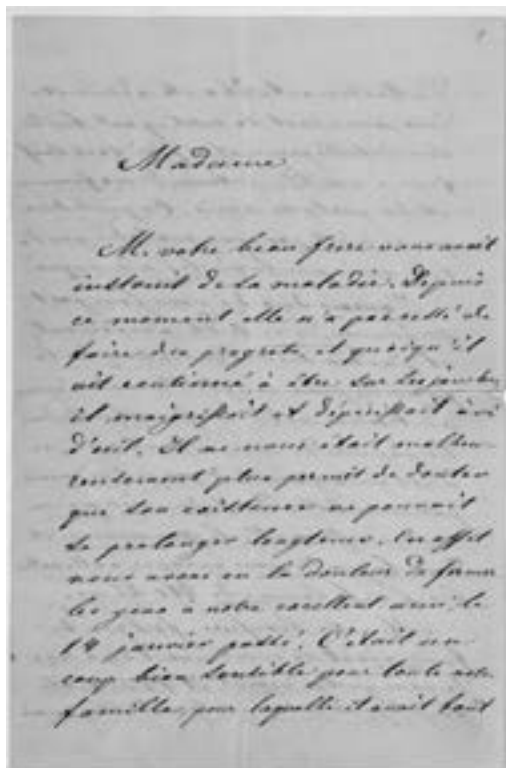 Madame
M. votre beau frere vous avait
instruit de la maladie. Depuis
ce moment elle n'a pas cessé de
faire des progrets, et quoiqu'il
ait continué à être sur ses jambes
il maigrissait et déperissait à vu
d'oeil. Il ne nous était malheu-
reusement plus permit de douter
que son existence ne pouvait
se prolonger longtems. En effet
nous avons eu la douleur de fermer
les yeux à notre excellent ami le
janvier passé. C'était un
coup bien sensible pour toute notre
famille, pour laquelle il avait tout